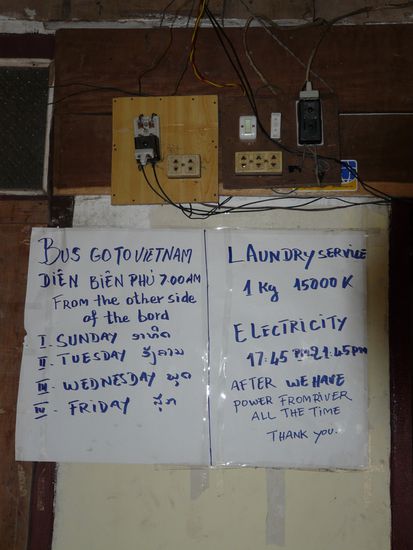 BUS GO TO VIETNAM
DIÊN BIÊN PHỦ 7:00AM
FROM the other side
of the bord
I - SUNDAY ອາທິດ
II - TUESDAY ອັງຄານ
III - WEDNESDAY ພຸດ
IV - FRIDAY ສຸກ
LAUNDRY SERVICE
1 Kg 15000 K
ELECTRICITY
17:45 21:45 PM
AFTER WE HAVE
POWER FROM RIVER
ALL THE TIME
THANK YOU.